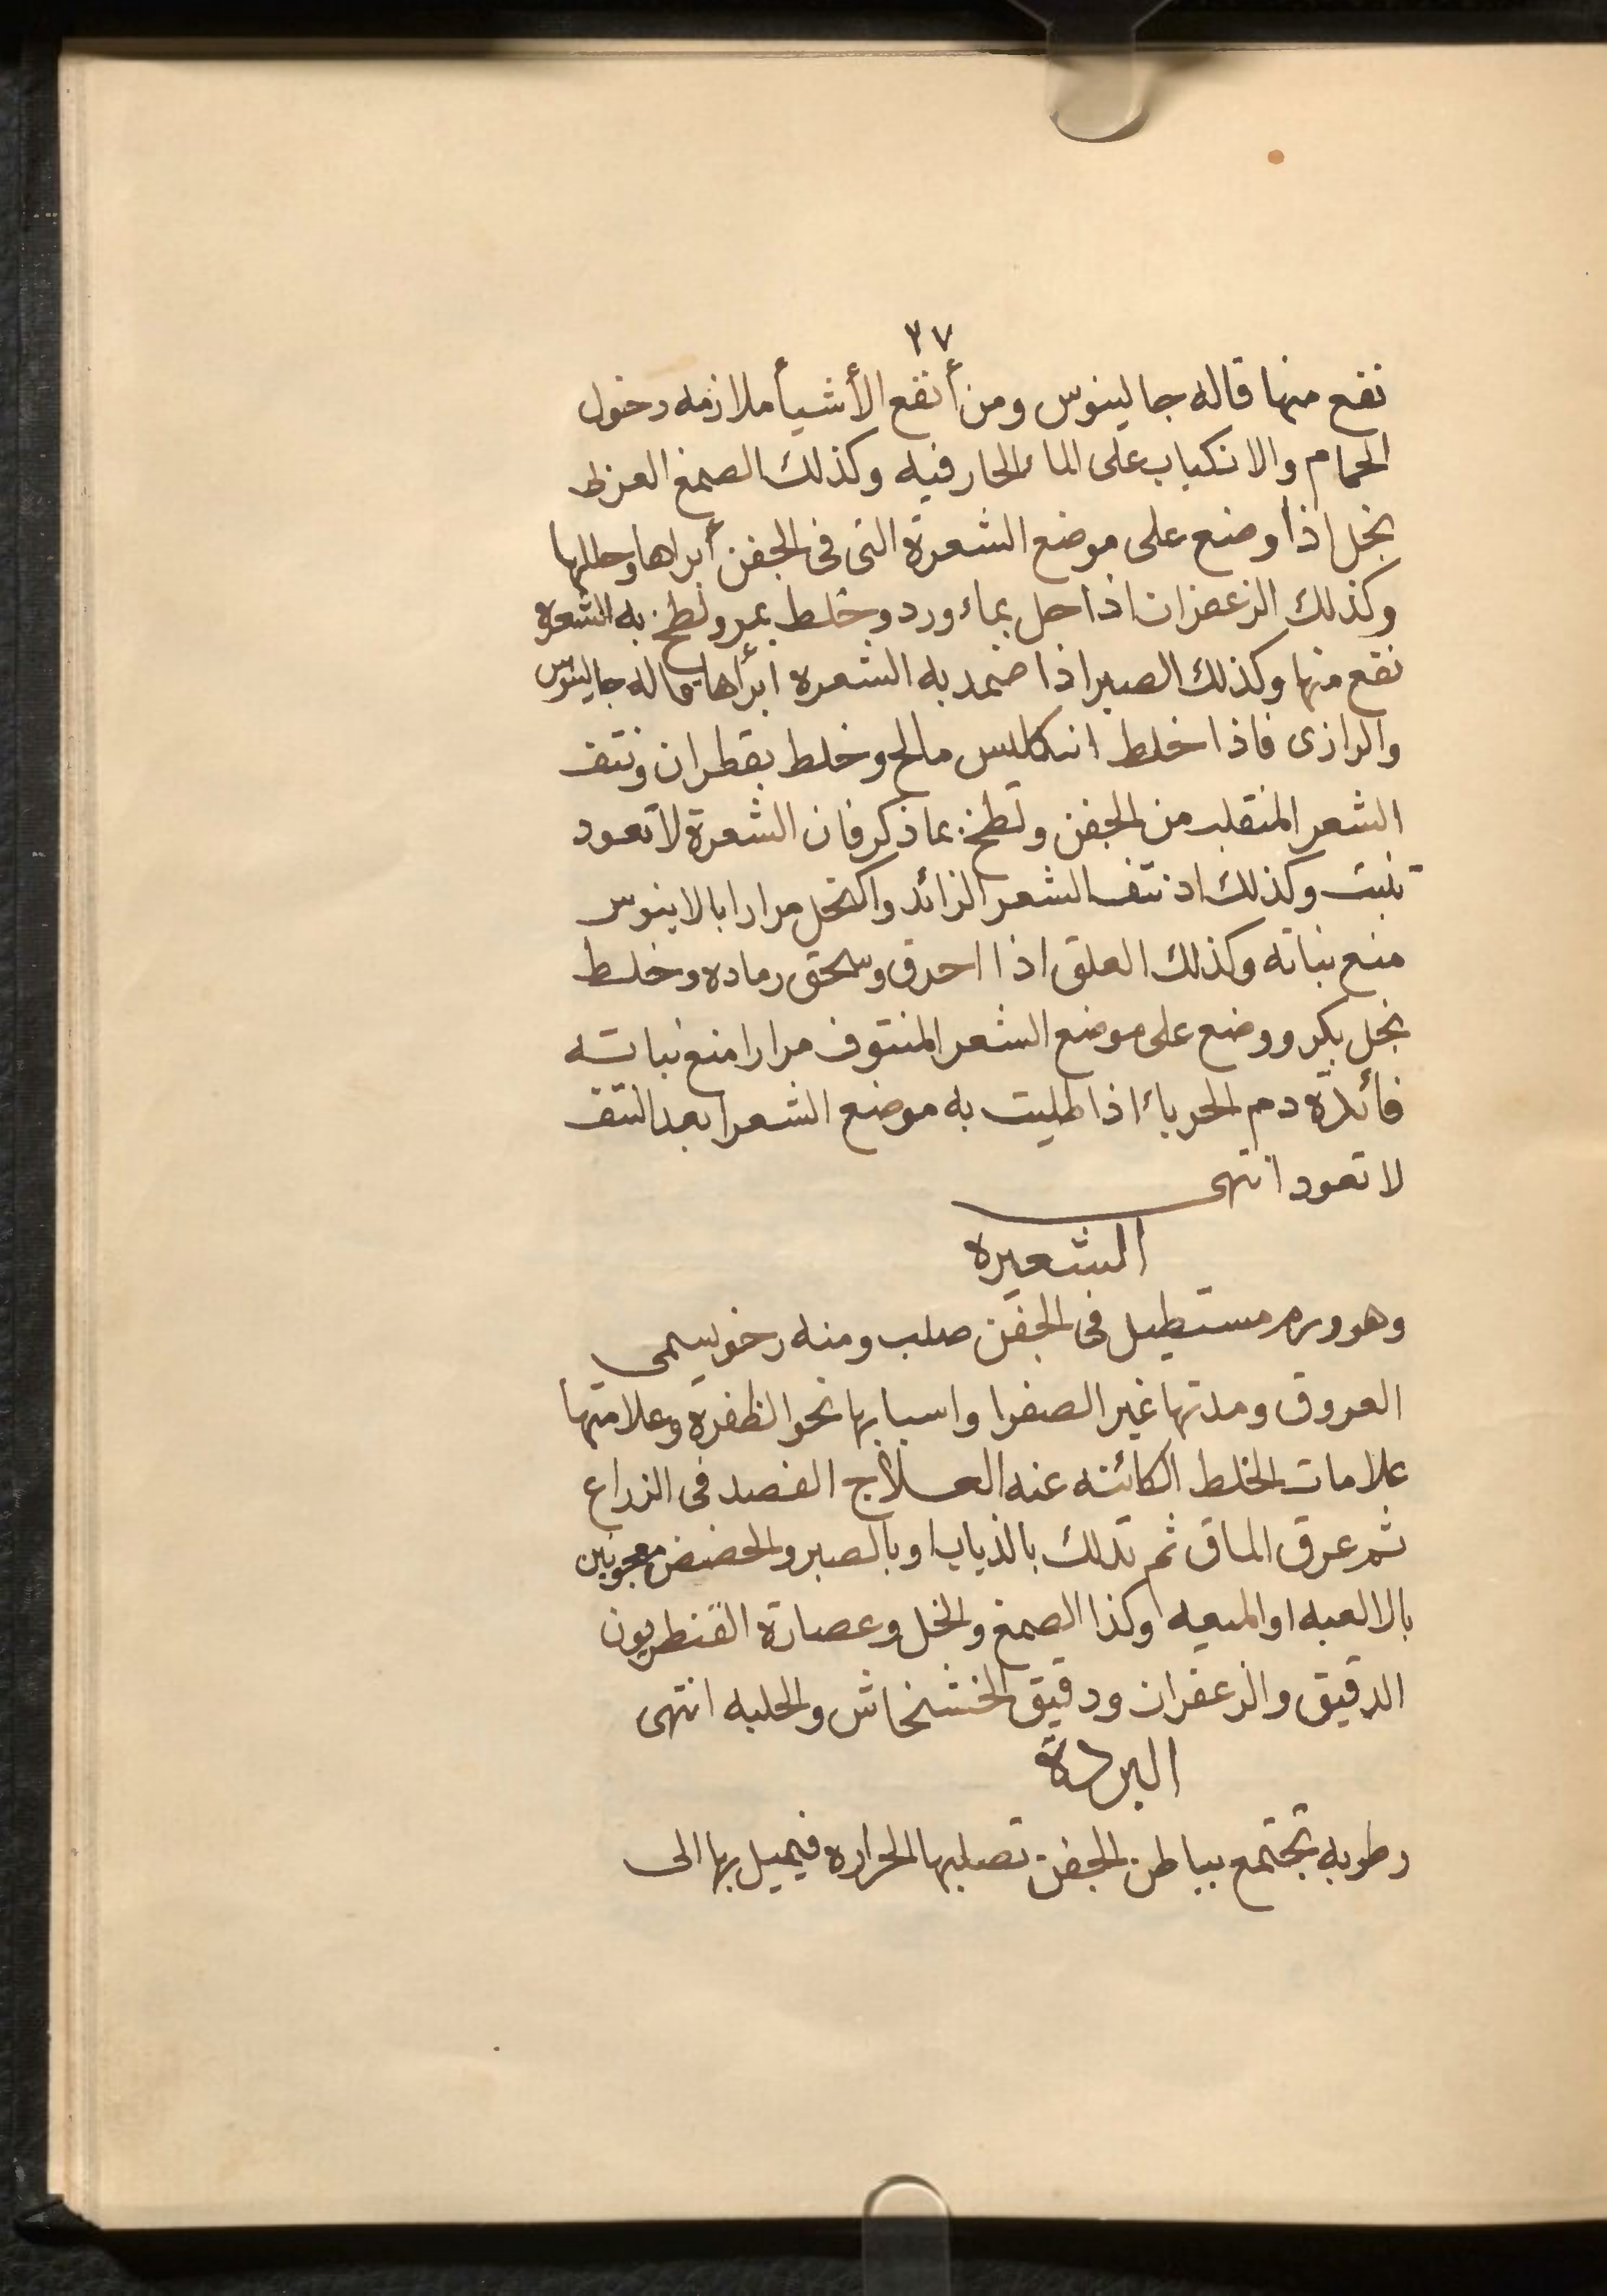 ٣٧
نفع منها قاله جالينوس ومن أنفع الأشيأ ملازمه دخول
الحمام والانكباب على الماء الحار فيه وكذلك الصمغ العزظ
بخل اذا وضع على موضع الشعرة التى فى الجفن أبراها وحللها
وكذلك الزعفران اذا حل بماء ورد وخلط بمر ولطخ به الشعره
نفع منها وكذلك الصبر اذا ضمد به الشعره ابرأها قاله جالينوس
والرازى فاذا خلط انكليس مالح وخلط بقطران ونتف
الشعر المنقلب من الجفن ولطخ بما ذكر فان الشعرة لا تعود
تنبت وكذلك اذ نتف الشعر الزائد واكتحل مرارا بالابنوس
منع نباته وكذلك العلق اذا احرق وسحق رماده وخلط
بخل بكر ووضع على موضع الشعر المنتوف مرارا منع نباته
فائدة دم الحرباء اذا طليت به موضع الشعر ابعد النتف
لا تعود انتهى
الشعيره
وهو ورم مستطيل فى الجفن صلب ومنه رخو يسمى
العروق ومدتها غير الصفرا واسبابها نحو الظفرة وعلامتها
علامات الخلط الكائنه عنه العلاج الفصد فى الزراع
ثم عرق الماق ثم تدلك بالذباب او بالصبر والحضض معجونين
بالالعبه او الميعه وكذا الصمغ والخل وعصارة القنطريون
الدقيق والزعفران ودقيق الخشخاش والحلبه انتهى
البردة
رطوبه تجتمع بباطن الجفن تصلبها الحراره فيميل بها الى